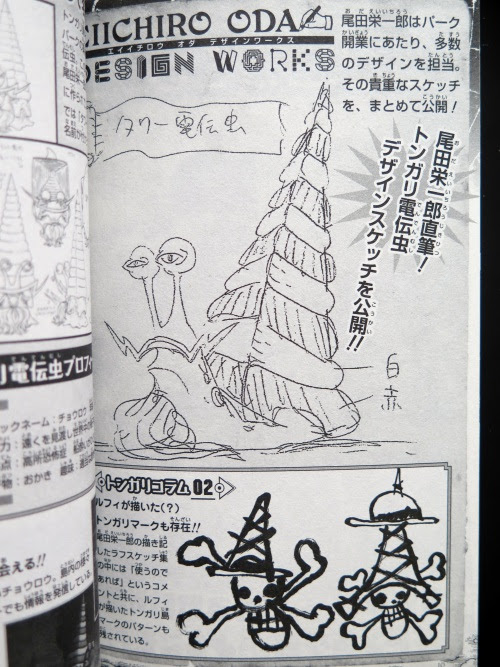 EIICHIRO ODA
エイイチロウ オダ デザインワークス
DESIGN WORKS
尾田栄一郎はパーク
開業にあたり、多数
のデザインを担当。
その貴重なスケッチ
を、まとめて公開！
尾田栄一郎直筆！
トンガリ電伝虫
デザインスケッチを公開！！
タワー電伝虫
白
赤
トンガリコラム 02
ルフィが描いた(？)
トンガリマークも存在！！
尾田栄一郎の描き記
したラフスケッチ集
の中には「使うので
あれば」というコメ
ントと共に、ルフィ
が描いたトンガリ島
マークのパターンも
残されている。
リ電伝虫プロフィ
ックネーム：チョウロウ
力：遠くを見渡し
点：高所恐怖症
物：おかき
会える！！
チョウロウ。
でも情報を発信している